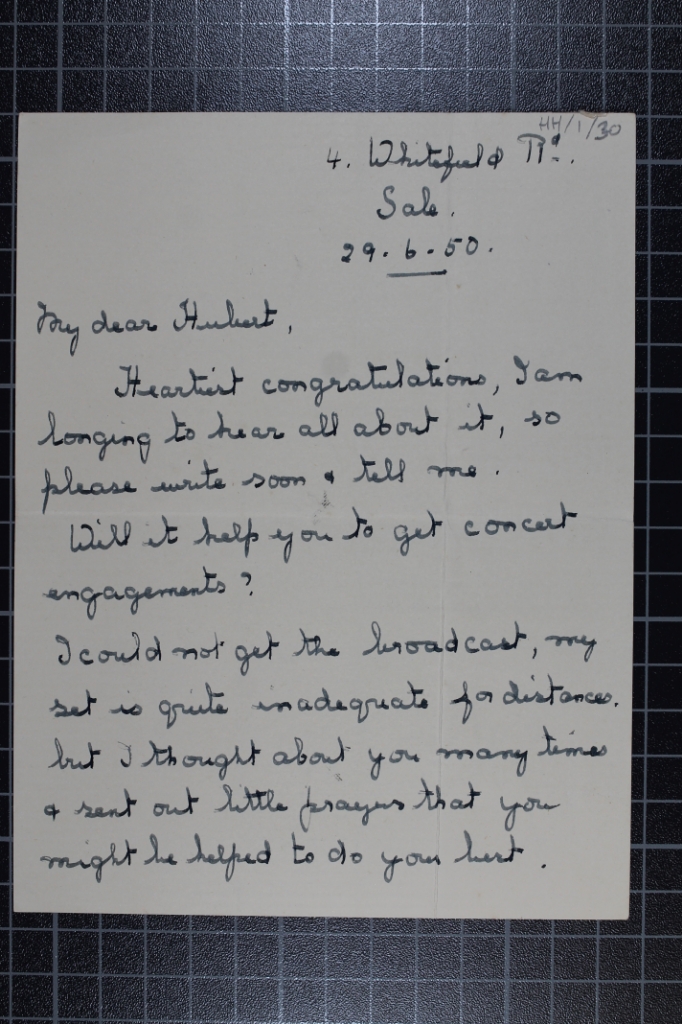 HH/1/30
4. Whitefield Rd.
Sale.
29.6.50.
My dear Hubert,
Heartiest congratulations, I am
longing to hear all about it, so
please write soon & tell me.
Will it help you to get concert
engagements?
I could not get the broadcast, my
set is quite inadequate for distances.
but I thought about you many times
& sent out little prayers that you
might be helped to do your best.